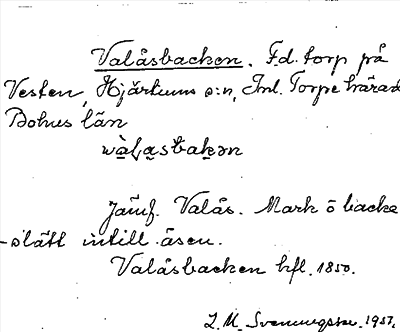 Valåsbacken. F.d. torp på
Vesten, Hjärtums s:n, Inl. Torpe härad
Bohus län
wàlasbakən
Jämf. Valås. Mark o backe
-slätt intill åsen.
Valåsbacken hfl. 1850.
L. M. 1957.